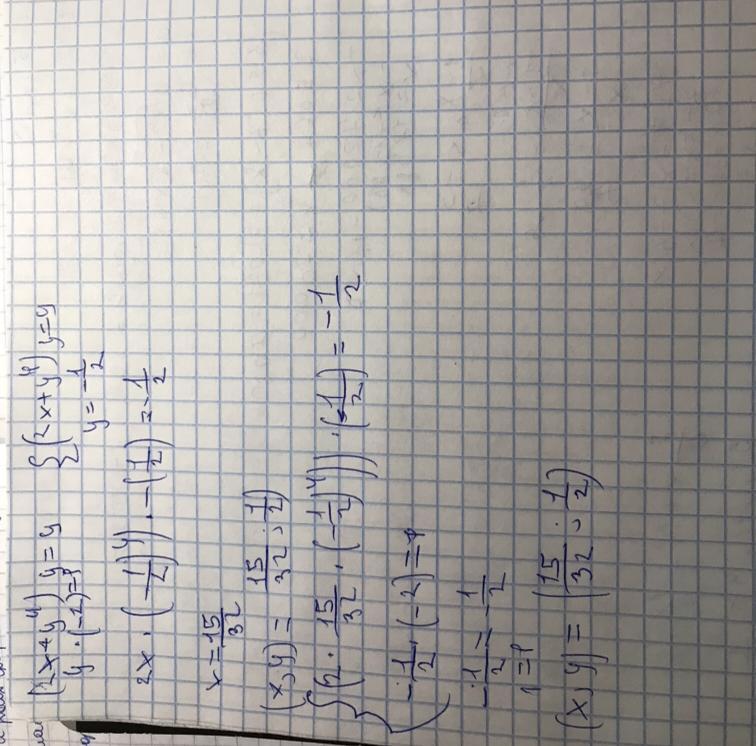 (2x+y⁴) y = y    {(2x+y⁴) y=y
y · (-2)=1    y = -1/2
2x · (-1/2)⁴) · -(1/2) = -1/2
x = 15/32
(x, y) = 15/32 ; 1/2)
{(2 · 15/32 · (-1/2)⁴)) · (-1/2) = -1/2
-1/2 · (-2) = 1
-1/2 = -1/2
1=1
(x, y) = (15/32 ; 1/2)